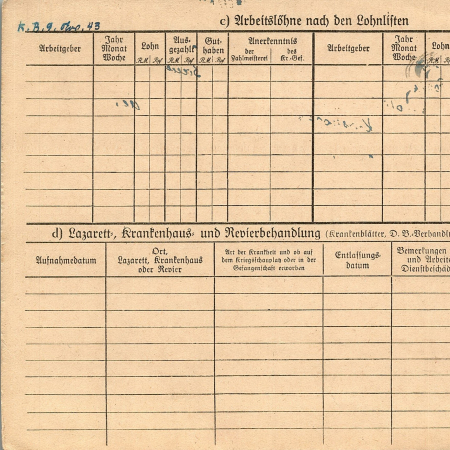 c) Arbeitslöhne nach den Lohnlisten
Arbeitgeber
Jahr
Monat
Woche
Lohn
R.M. Rpf
Aus-
gezahlt
R.M. Rpf
Gut-
haben
R.M. Rpf
Anerkenntnis
der
Zahlmeisterei
des
Kr.-Gef.
Arbeitgeber
Jahr
Monat
Woche
Lohn
R.M. Rpf
d) Lazarett-, Krankenhaus- und Revierbehandlung (Krankenblätter, D. B.-Verhandl
Aufnahmedatum
Ort,
Lazarett, Krankenhaus
oder Revier
Art der Krankheit und ob auf
dem Kriegsschauplatz oder in der
Gefangenschaft erworben
Entlassungs-
datum
Bemerkungen
und Arbeits
Dienstbeschäd